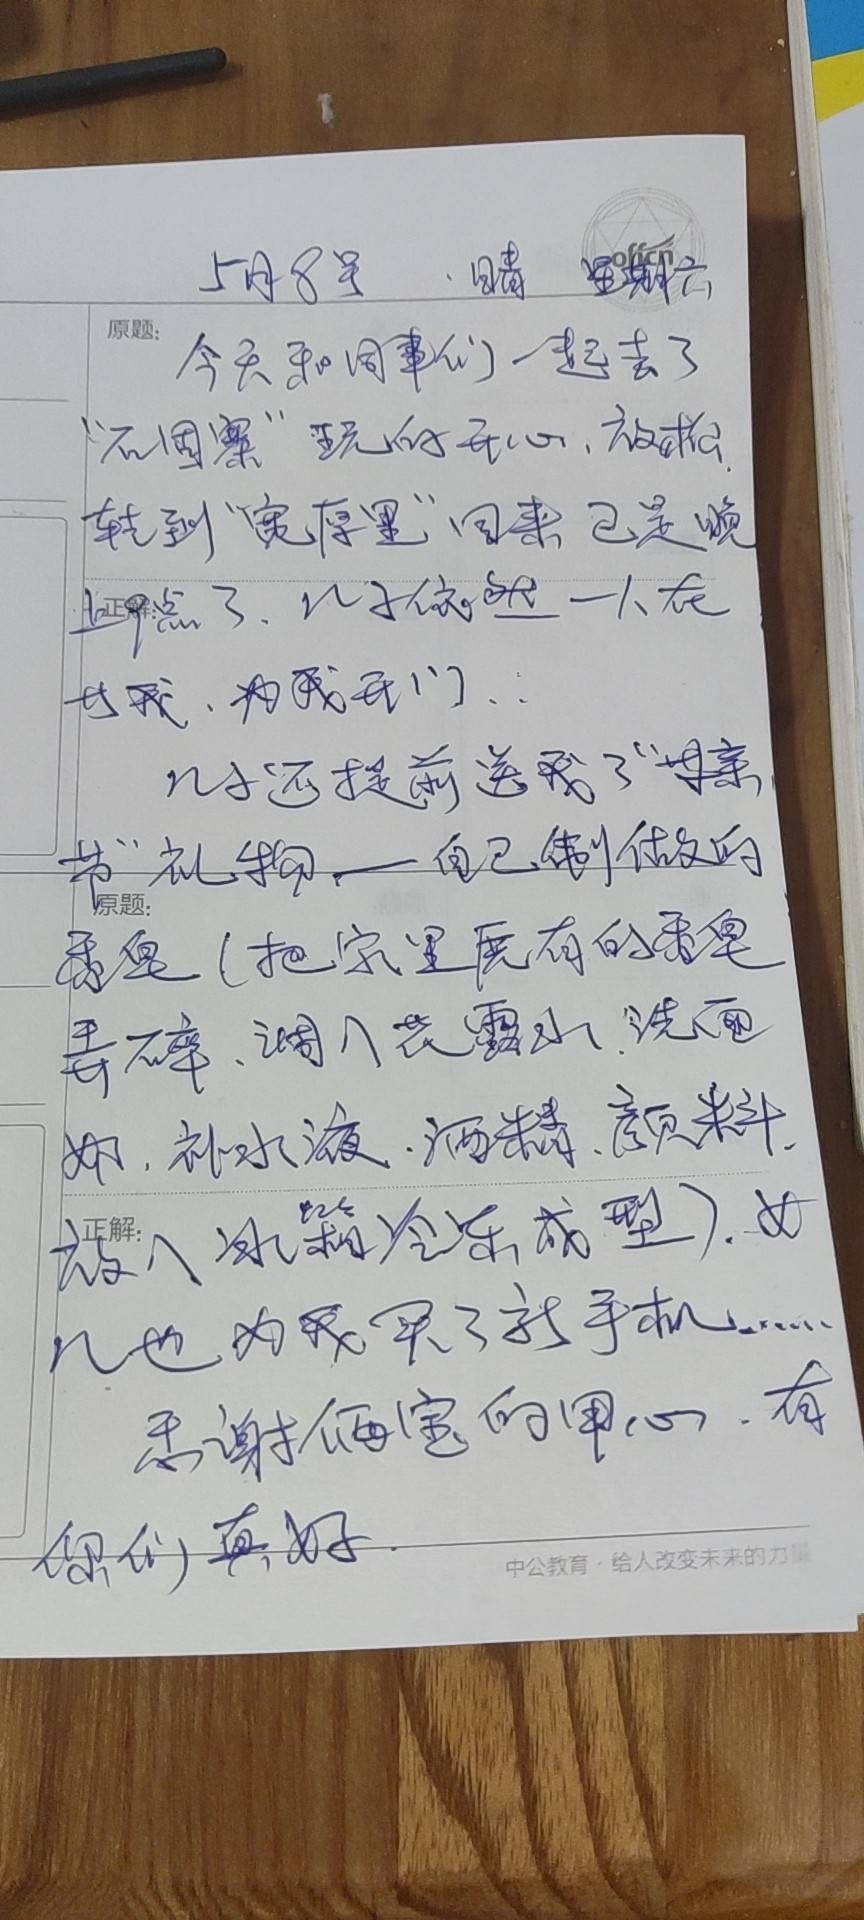 offcn
5月8号 晴 星期六
原题:
今天和同事们一起去了
“石固寨”玩的开心、放松.
转到“宽厚里”回来已是晚
正解:
上9点了、儿子依然一人在
等我、为我开门.
儿子还提前送我了“母亲
节”礼物,—自己制做的
原题:
香皂(把家里既有的香皂
弄碎、调入花露水、洗面
奶、补水液、酒精、颜料、
正解:
放入冰箱冷冻成型).女
儿也为我买了新手机......
感谢俩宝的用心、有
你们真好.
中公教育·给人改变未来的力量